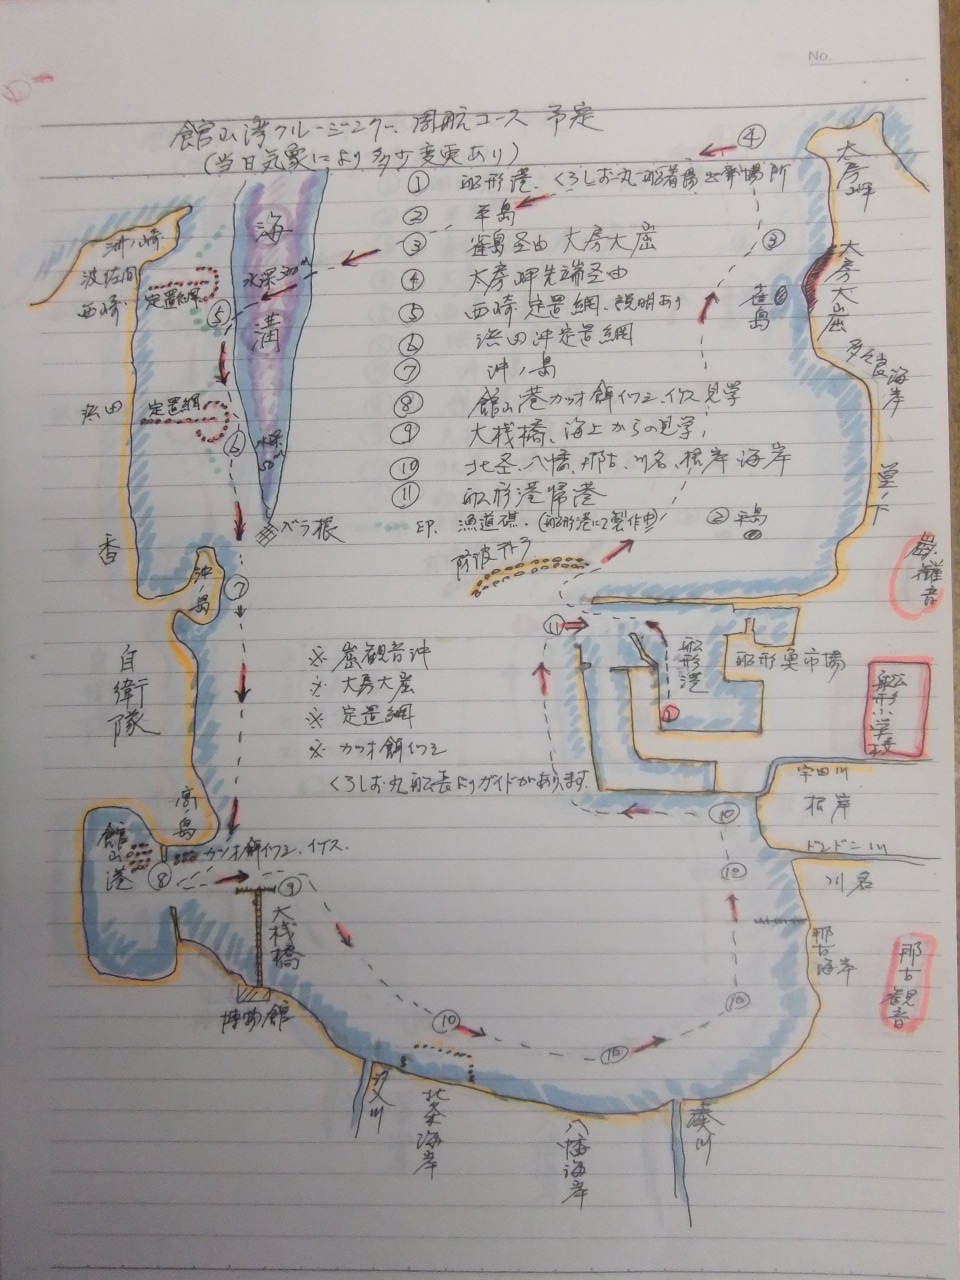 No.
館山湾クルージング、周航コース 予定
(当日気象により多少変更あり)
① 船形港、くろしお丸船着場 出発場所
② 平島
③ 雀島経由 大房大崫
④ 大房岬先端経由
⑤ 西崎 定置網、説明あり
⑥ 浜田沖定置網
⑦ 沖ノ島
⑧ 館山港カツオ餌イワシ、イケス見学
⑨ 大桟橋、海上からの見学、
⑩ 北条、八幡、那古、川名、根岸 海岸
⑪ 船形港帰港
④
大房岬
③
大房大崫
雀島
多々良海岸
堂ノ下
② 平島
海溝
洲ノ崎
波佐間
西崎
定置網
⑤
浜田
定置網
⑥
香
沖ノ島
⑦
自衛隊
高ノ島
館山港
⑧
カツオ餌イワシ、イケス
⑨
大桟橋
博物館
汐入川
北条海岸
八幡海岸
湊川
⑩
⑩
⑩
⑩
⑩
那古海岸
那古観音
川名
根岸
船形小学校
船形魚市場
船形港
①
⑪
※ 崫観音沖
※ 大房大崫
※ 定置網
※ カツオ餌イワシ
くろしお丸船長よりガイドがあります。